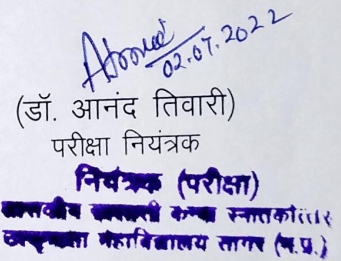 02.07.2022
(डॉ. आनंद तिवारी)
परीक्षा नियंत्रक
नियंत्रक (परीक्षा)
कन्या स्नातकोत्तर
महाविद्यालय सागर (म.प्र.)